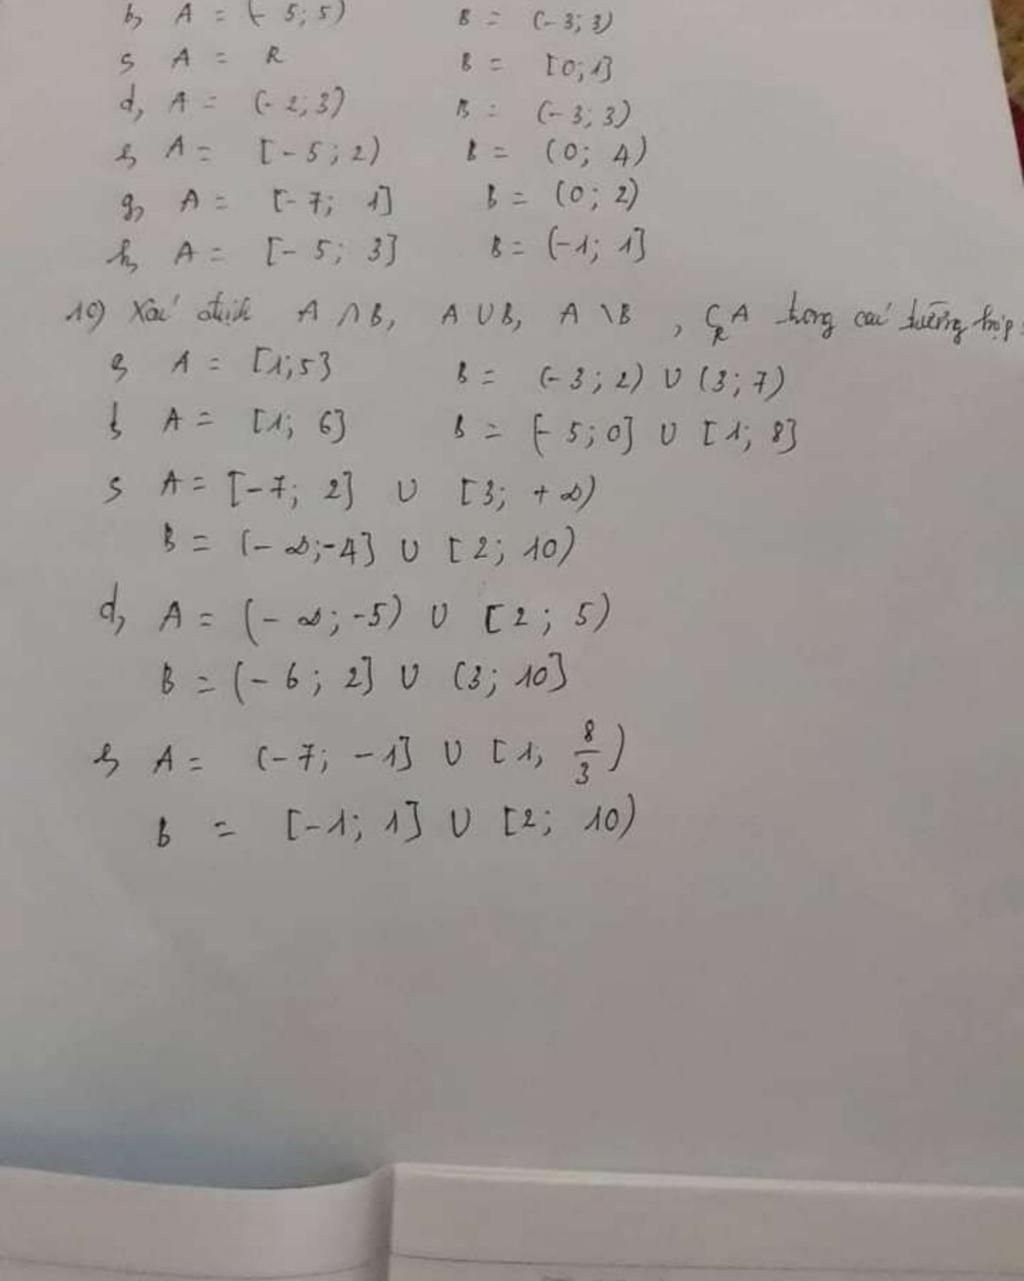 b, A = (-5;5) B = (-3;3)
c, A = R B = [0;1]
d, A = (-2;3) B = (-3;3)
e, A = [-5;2) B = (0; 4)
g, A = [-7; 1] B = (0; 2)
h, A = [-5; 3] B = (-1; 1]
10) Xác định A ∩ B, A ∪ B, A \ B, C_R A trong các trường hợp:
a, A = [1;5] B = (-3;2) ∪ (3;7)
b, A = [1; 6] B = [-5;0] ∪ [1; 8]
c, A = [-7; 2] ∪ [3; +∞)
B = (-∞;-4] ∪ [2; 10)
d, A = (-∞;-5) ∪ [2; 5)
B = (-6; 2] ∪ (3; 10]
e, A = (-7; -1] ∪ [1, 8/3)
B = [-1; 1] ∪ [2; 10)